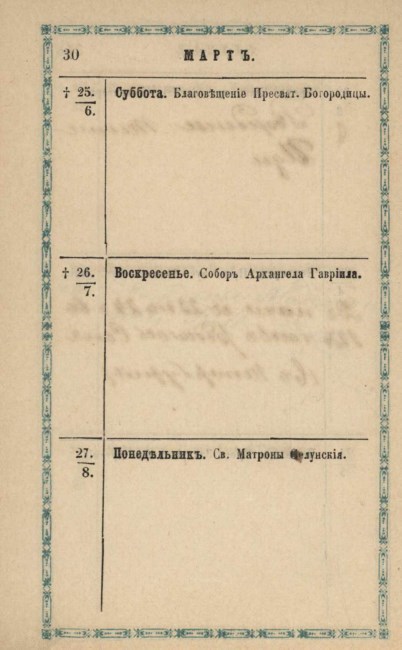 30 МАРТЪ.
† 25. Суббота. Благовѣщеніе Пресват. Богородицы.
6.
† 26. Воскресенье. Соборъ Архангела Гавріила.
7.
27. Понедѣльникъ. Св. Матроны Селунскія.
8.